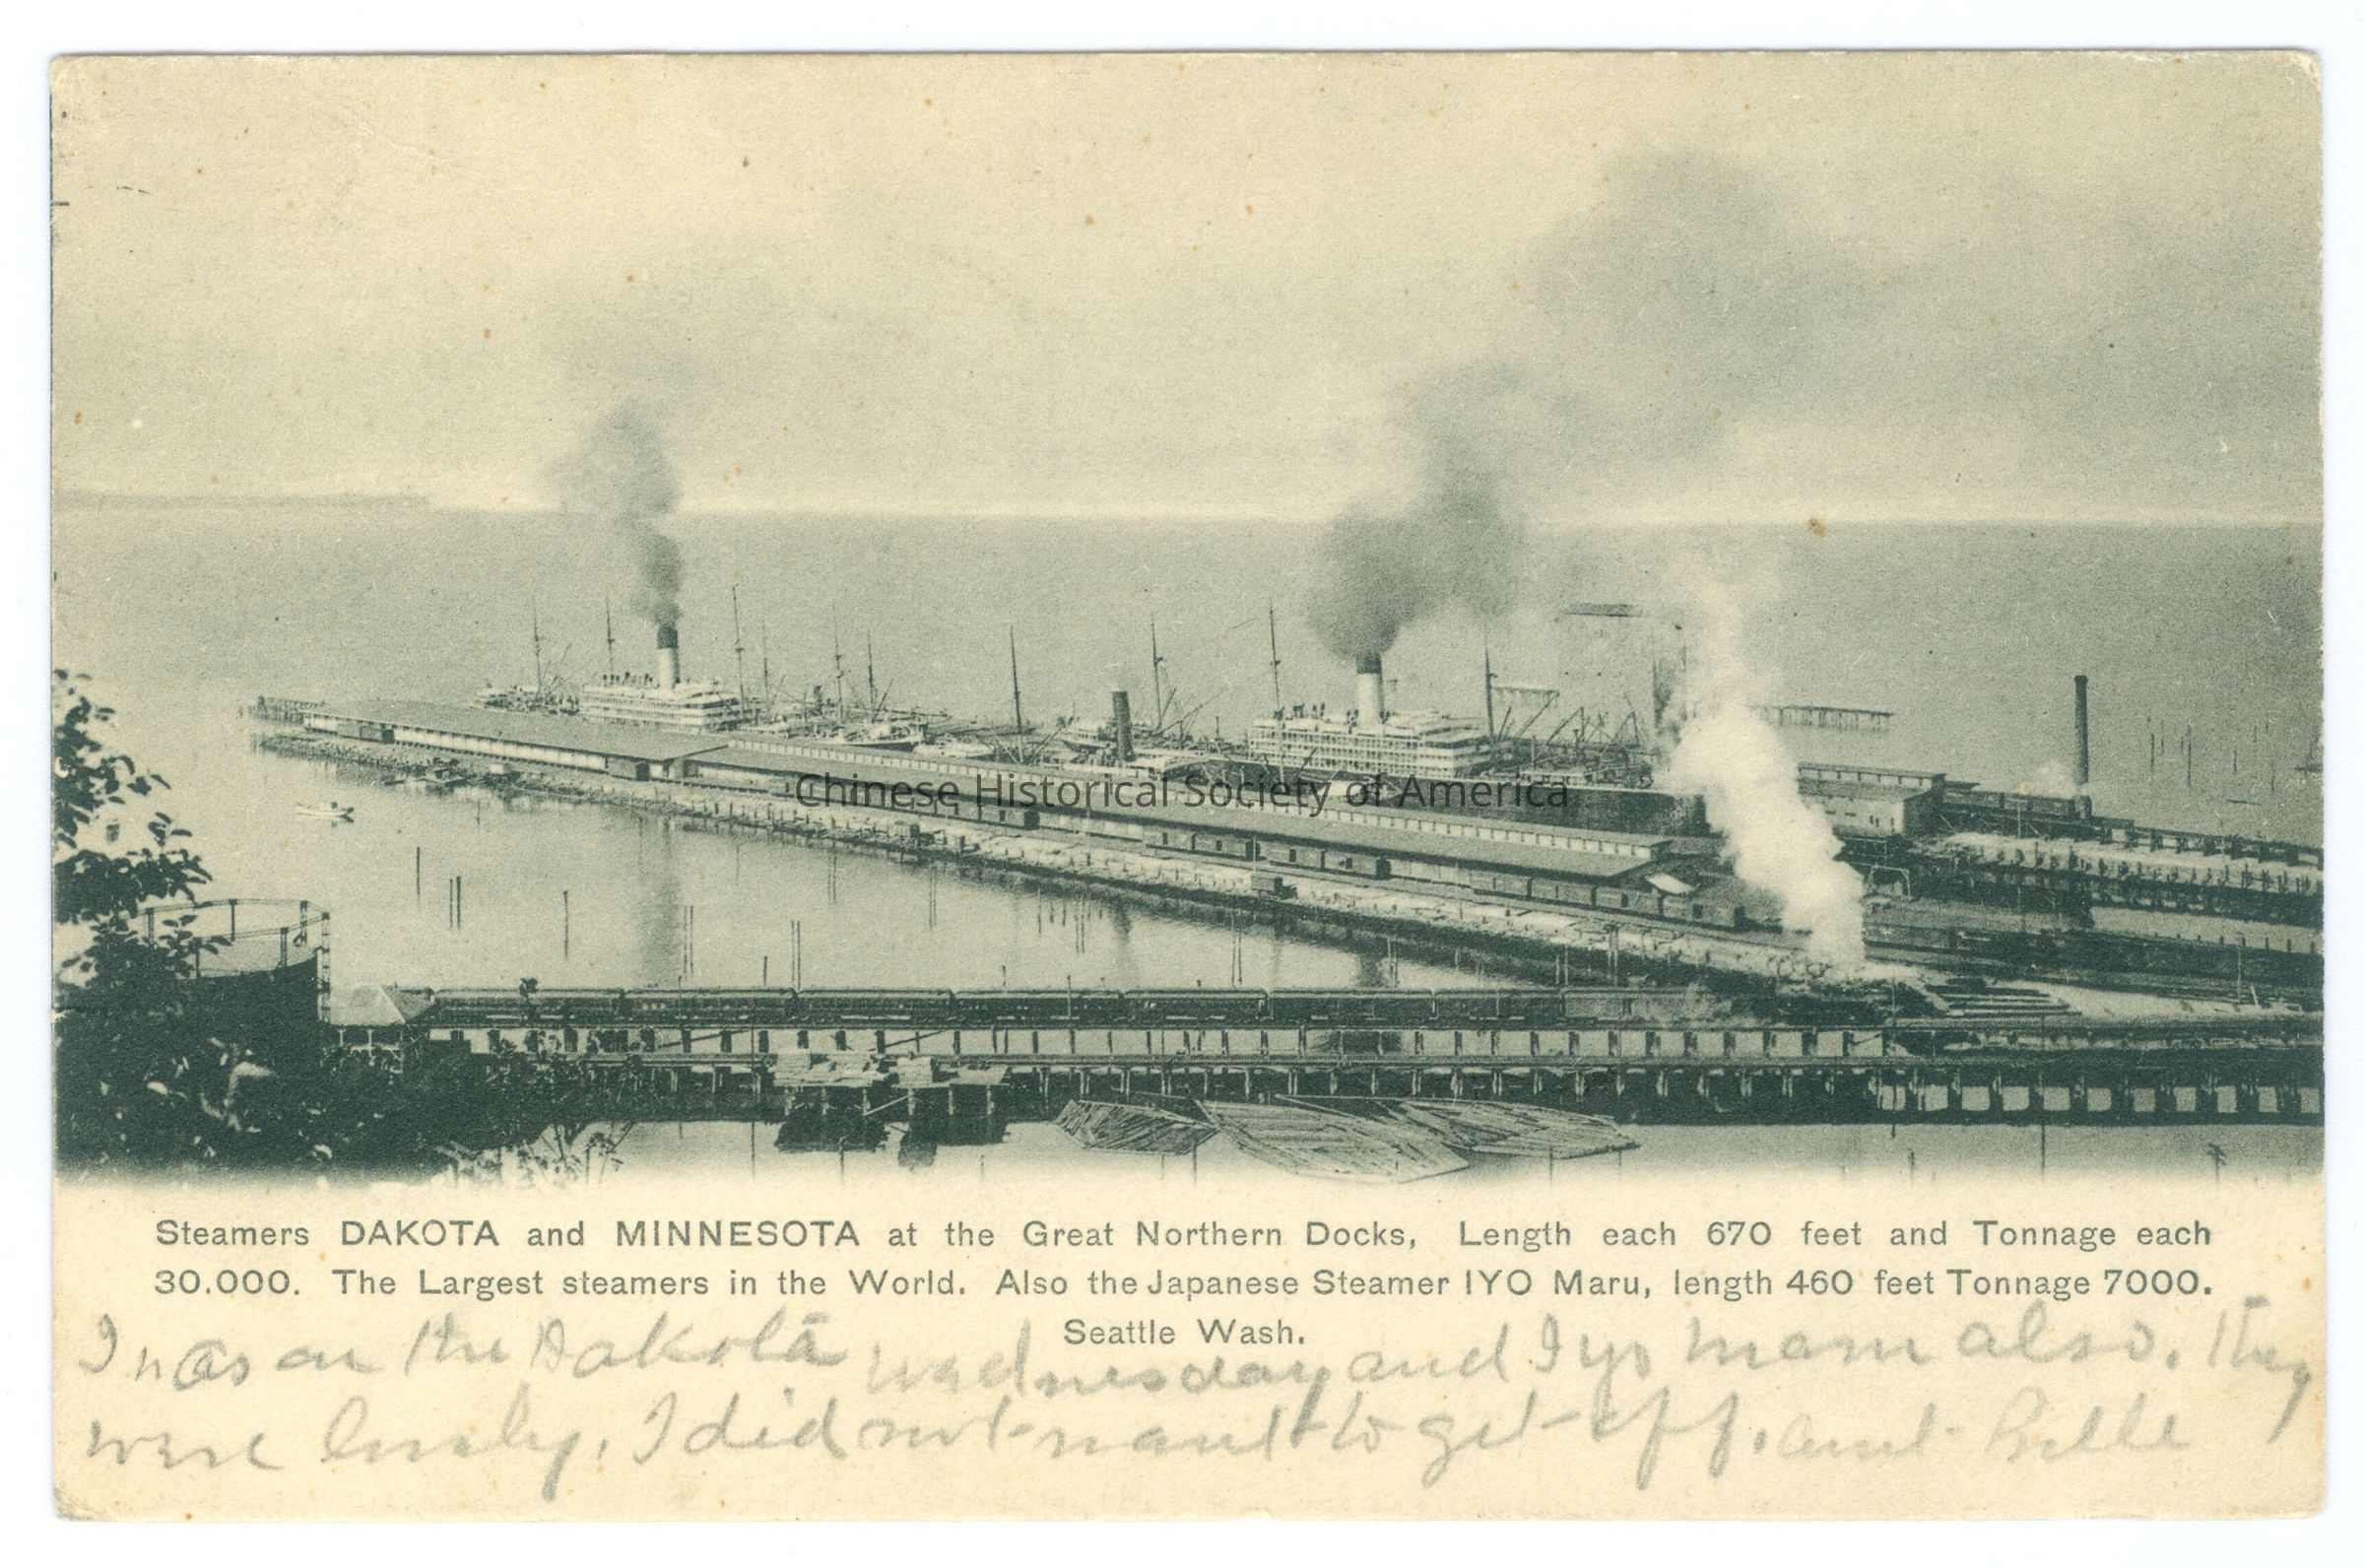 Chinese Historical Society of America
Steamers DAKOTA and MINNESOTA at the Great Northern Docks, Length each 670 feet and Tonnage each
30.000. The Largest steamers in the World. Also the Japanese Steamer IYO Maru, length 460 feet Tonnage 7000.
Seattle Wash.
I was on the Dakota wednesday and Iyo maru also. they
were lovely, I did not want to get off. aunt Belle